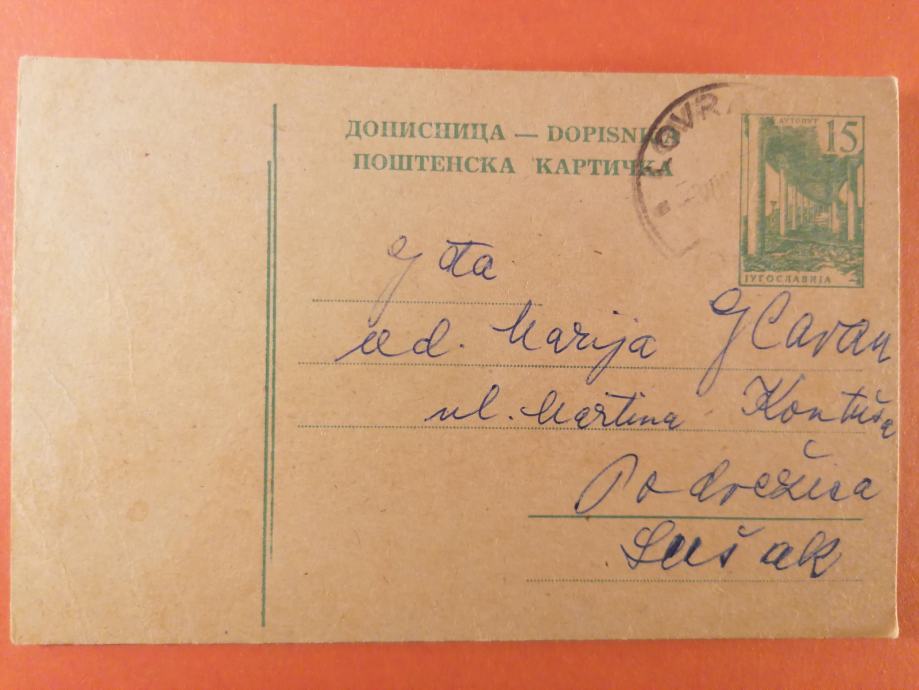 ДОПИСНИЦА — DOPISNICA
ПОШТЕНСКА КАРТИЧКА
LOVRA
АУТОПУТ
15
ЈУГОСЛАВИЈА
Gđa
ud. Marija Glavan
ul. Martina Kontuša
Podvežica
Sušak